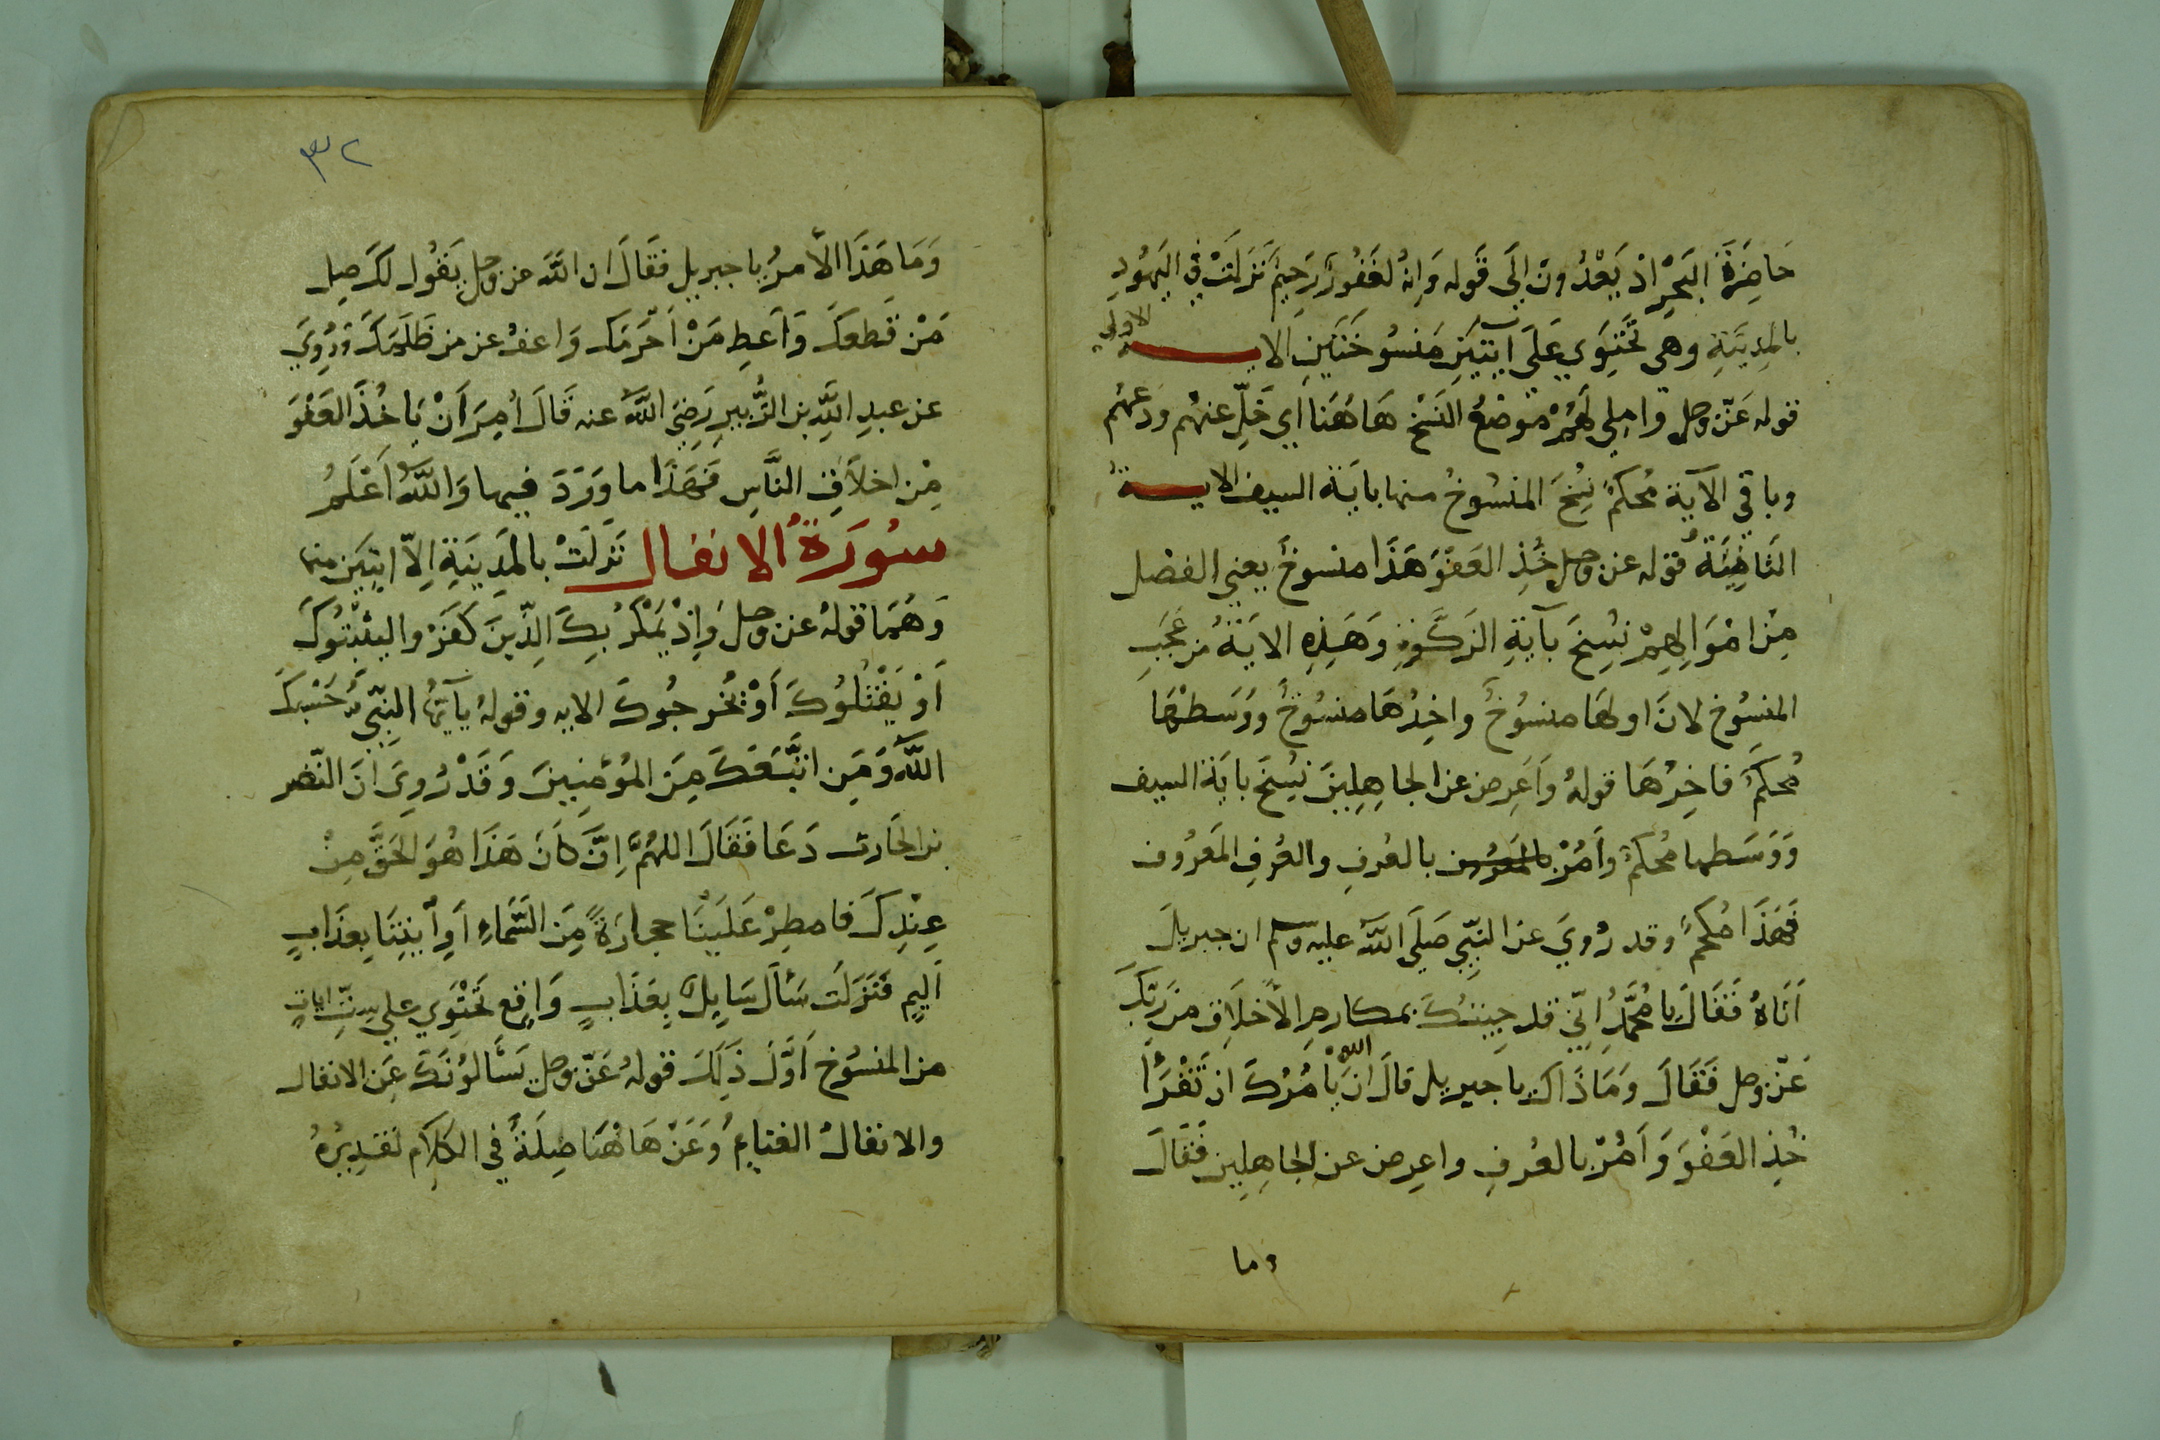 حَاضِرَةَ البَحْرِ اذ يَعْدُونَ إلَى قوله وَانهُ لغَفُورٌ رَحِيمٌ نَزلَتْ فِي اليَهُودِ
بالمدِينَةِ وهى تَحْتَوِي عَلَى ايتَينِ مَنسُوخَتَينِ الايـــة الاولى
قوله عَزّ وجل واملي لَهُمْ موضعُ النَسْخ هَاهُنَا اي خَلِّ عنهُم ودَعهُم
وباقي الآيَة مُحكمٌ نُسِخَ المنسُوخُ منها بايَة السيف الايـــة
الثَانِيَةُ قوله عز وجل خُذِ العَفْوَ هَذَا منسوخٌ يعني الفضل
مِنْ امْوَالِهِمْ نُسِخَ بآيَةِ الزكَوةِ وَهَذِهِ الايَةُ من عَجَبِ
المنسُوخ لانَ اولهَا منسُوخٌ واخِرُهَا منسُوخٌ ووَسَطهَا
مُحكمٌ فاخِرُهَا قولهُ وَاَعرِض عن الجاهِلِينَ نُسِخَ بايَة السيف
وَوَسَطها مُحكمٌ وأمُرْ بالمعروف بالعُرفِ والعُرفِ المَعرُوف
فَهَذَا مُحكمٌ وقد رُويَ عن النَبِّي صَلَى اللَّه عليه وسلم ان جبريلَ
اَتَاهُ فَقَالَ يا مُحَمَّدُ اِنّي قد جِيتُكَ بمكارمِ الاَخلاَقِ من رَبِّكَ
عَزّ وجل فَقَالَ وَمَا ذَاكَ يا جبريل قالَ ان الله يَأمُرُكَ ان تَقْرَأَ
خُذِ العَفْوَ وَاَمُرْ بالعُرفِ واعرِض عن الجاهِلِين فَقَالَ
وما
٣٢
وَمَا هَذَا الأمرُ يا جبريل فقَالَ ان اللَّه عز وجل يَقُول لكَ صِل
مَنْ قَطعَكَ وَاَعطِ مَنْ اَحْرَمَكَ وَاعفُ عن من ظلَمَكَ وَرُوِيَ
عن عبدِ اللَّهِ بن الزُّبيرِ رَضِيَ اللَّهُ عنه قَالَ اُمِرَ اَنْ يَاخُذَ العَفْوَ
مِن اخلاَقِ النَّاسِ فَهَذَا ما وَرَدَ فيها وَاللَّهُ اَعْلَمُ
سُورَةُ الانفال نَزلَتْ بالمَدِينَةِ اِلاّ ايتَينِ منها
وَهُمَا قولهُ عز وجل وَاِذْ يَمْكُرُ بِكَ الذّينَ كَفَرُوا ليثبتُوكَ
اَوْ يَقْتُلُوكَ اَوْ يُخْرجُوكَ الايه وقولهُ يآيُّهَا النبّيُّ حَسْبُكَ
اللَّهُ وَمَنِ اتَّبَعَكَ مِنَ المُؤْمِنِينَ وَقَدْ رُوِيَ ان النّضر
بن الحَارث دَعَا فَقَالَ اللهُمَّ اِنْ كَانَ هَذَا هُوَ الحَقَّ مِنْ
عِنْدِكَ فامطِرْ عَلَيْنَا حجارَةً مِنَ السَّمَاءِ اَوِ أئتِنَا بِعَذَابٍ
اَلِيمٍ فَنَزلَت سَأَلَ سَايِلٌ بِعَذَابٍ وَاقِعٍ تَحْتَوِي علي سِتِّ اياتٍ
من المنسُوخ اَوَّلَ ذَلِكَ قولهُ عَزّ وجل يَسَألُونَكَ عَنِ الانفال
والانفالُ الغنايمُ وَعَنْ هَاهُنَا صِلَةٌ في الكلاَم تقدِيرُهُ